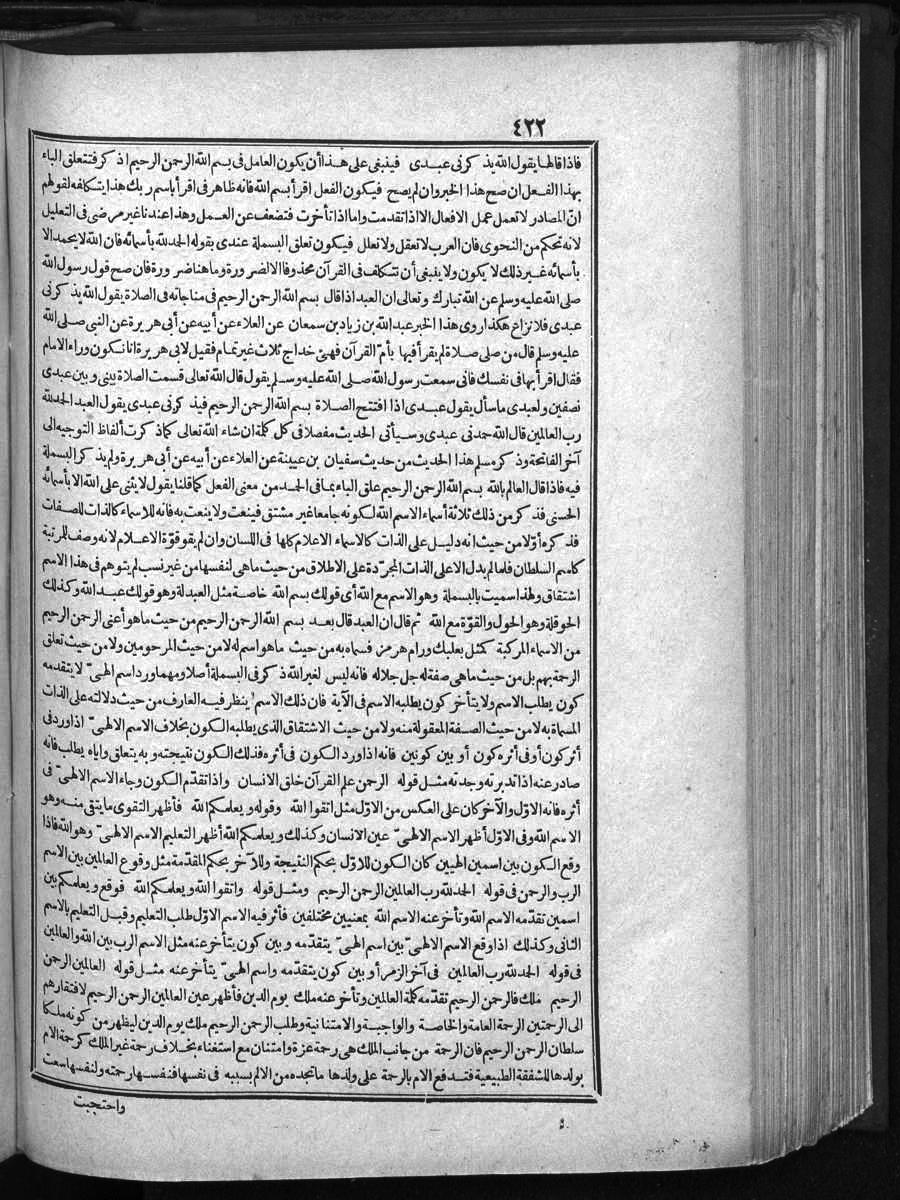 ٤٢٢
فاذا قالها يقول الله يذكرنى عبدى فينبغى على هذا أن يكون العامل فى بسم الله الرحمن الرحيم اذ كر فتتعلق الباء
بهذا الفعل ان صح هذا الخبر وان لم يصح فيكون الفعل اقرأ بسم الله فانه ظاهر فى اقرأ باسم ربك هذا يتكلفه لقولهم
انّ المصادر لا تعمل عمل الافعال الا اذا تقدمت واما اذا تأخرت فتضعف عن العمل وهذا عندنا غير مرضى فى التعليل
لانه تحكم من النحوى فان العرب لا تعقل ولا تعلل فيكون تعلق البسملة عندى بقوله الحمد لله بأسمائه فان الله لا يحمد الا
بأسمائه غير ذلك لا يكون ولا ينبغى أن نتكلف فى القرآن محذوفا الا لضرورة وما هنا ضرورة فان صح قول رسول الله
صلى الله عليه وسلم عن الله تبارك وتعالى ان العبد اذا قال بسم الله الرحمن الرحيم فى مناجاته فى الصلاة يقول الله يذكرنى
عبدى فلا نزاع هكذا روى هذا الخبر عبد الله بن زياد بن سمعان عن العلاء عن أبيه عن أبى هريرة عن النبى صلى الله
عليه وسلم قال من صلى صلاة لم يقرأ فيها بأمّ القرآن فهى خداج ثلاث غير تمام فقيل لابى هريرة انا نكون وراء الامام
فقال اقرأ بها فى نفسك فانى سمعت رسول الله صلى الله عليه وسلم يقول قال الله تعالى قسمت الصلاة بينى وبين عبدى
نصفين ولعبدى ما سأل يقول عبدى اذا افتتح الصلاة بسم الله الرحمن الرحيم فيذكرنى عبدى يقول العبد الحمد لله
رب العالمين قال الله حمدنى عبدى وسيأتى الحديث مفصلا فى كل كلمة ان شاء الله تعالى كما ذكرت ألفاظ التوجيه الى
آخر الفاتحة وذكر مسلم هذا الحديث من حديث سفيان بن عيينة عن العلاء عن أبيه عن أبى هريرة ولم يذكر البسملة
فيه فاذا قال العالم بالله بسم الله الرحمن الرحيم علق الباء بما فى الحمد من معنى الفعل كما قلنا يقول لا يثنى على الله الا بأسمائه
الحسنى فذكر من ذلك ثلاثة أسماء الاسم الله لكونه جامعا غير مشتق فينعت ولا ينعت به فانه للاسماء كالذات للصفات
فذكره أوّلا من حيث انه دليل على الذات كالاسماء الاعلام كلها فى اللسان وان لم يقو قوّة الاعلام لانه وصف للمرتبة
كاسم السلطان فلما لم يدل الا على الذات المجرّدة على الاطلاق من حيث ما هى لنفسها من غير نسب لم يتوهم فى هذا الاسم
اشتقاق ولهذا سميت بالبسملة وهو الاسم مع الله أى قولك بسم الله خاصة مثل العبدلة وهو قولك عبد الله وكذلك
الحوقلة وهو الحول والقوّة مع الله ثم قال ان العبد قال بعد بسم الله الرحمن الرحيم من حيث ما هو أعنى الرحمن الرحيم
من الاسماء المركبة كمثل بعلبك ورام هرمز فسماه به من حيث ما هو اسم له لا من حيث المرحومين ولا من حيث تعلق
الرحمة بهم بل من حيث ما هى صفة له جل جلاله فانه ليس لغير الله ذكر فى البسملة أصلا ومهما ورد اسم الهىّ لا يتقدمه
كون يطلب الاسم ولا يتأخر كون يطلبه الاسم فى الآية فان ذلك الاسم ينظر فيه العارف من حيث دلالته على الذات
المسماة به لا من حيث الصفة المعقولة منه ولا من حيث الاشتقاق الذى يطلبه الكون بخلاف الاسم الالهىّ اذا ورد فى
أثر كون أو فى أثره كون أو بين كونين فانه اذا ورد الكون فى أثره فذلك الكون نتيجته وبه يتعلق واياه يطلب فانه
صادر عنه اذا تدبرته وجدته مثل قوله الرحمن علم القرآن خلق الانسان واذا تقدّم الكون وجاء الاسم الالهىّ فى
أثره فانه الاوّل والآخر كان على العكس من الاوّل مثل اتقوا الله وقوله ويعلمكم الله فأظهر التقوى ما يتقى منه وهو
الاسم الله وفى الاوّل أظهر الاسم الالهىّ عين الانسان وكذلك ويعلمكم الله أظهر التعليم الاسم الالهىّ وهو الله فاذا
وقع الكون بين اسمين الهيين كان الكون للاوّل بحكم النتيجة وللآخر بحكم المقدّمة مثل وقوع العالمين بين الاسم
الرب والرحمن فى قوله الحمد لله رب العالمين الرحمن الرحيم ومثل قوله واتقوا الله ويعلمكم الله فوقع ويعلمكم بين
اسمين تقدّمه الاسم الله وتأخر عنه الاسم الله بمعنيين مختلفين فأثر فيه الاسم الاوّل طلب التعليم وقبل التعليم بالاسم
الثانى وكذلك اذا وقع الاسم الالهىّ بين اسم الهىّ يتقدمه وبين كون يتأخر عنه مثل الاسم الرب بين الله والعالمين
فى قوله الحمد لله رب العالمين فى آخر الزمر أو بين كون يتقدمه واسم الهىّ يتأخر عنه مثل قوله العالمين الرحمن
الرحيم ملك فالرحمن الرحيم تقدّمه كلمة العالمين وتأخر عنه ملك يوم الدين فأظهر عين العالمين الرحمن الرحيم لافتقارهم
الى الرحمتين الرحمة العامة والخاصة والواجبة والامتنانية وطلب الرحمن الرحيم ملك يوم الدين ليظهر من كونه ملكا
سلطان الرحمن الرحيم فان الرحمة من جانب الملك هى رحمة عزة وامتنان مع استغناء بخلاف رحمة غير الملك كرحمة الام
بولدها للشفقة الطبيعية فتدفع الام بالرحمة على ولدها ما تجده من الالم بسببه فى نفسها فنفسها رحمته ولنفسها سعت
واحتجبت